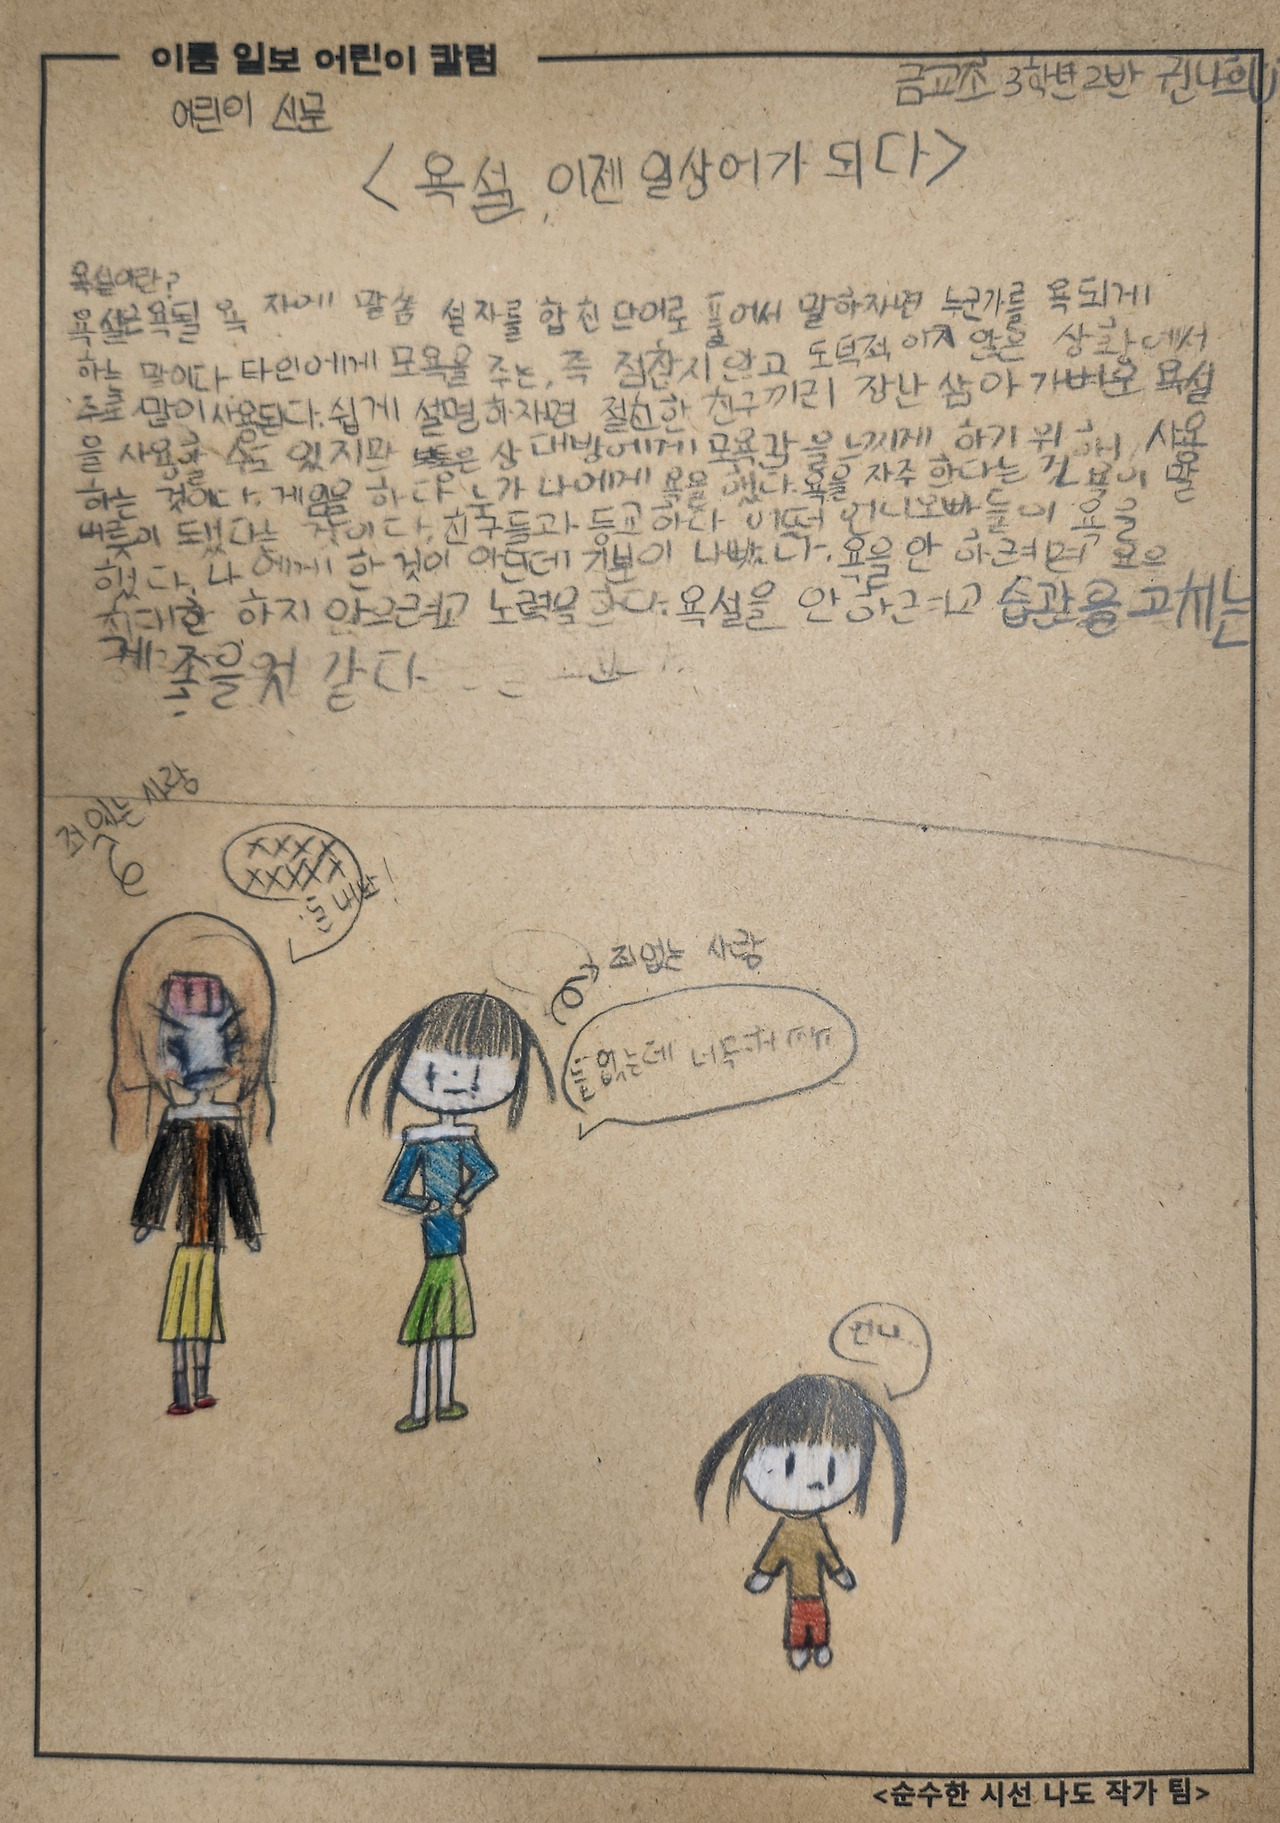 이룸 일보 어린이 칼럼
금교초 3학년 2반 권나희
어린이 신문
<욕설, 이젠 일상어가 되다>
욕설이란?
욕설은 욕될 욕 자에 말씀 설 자를 합친 단어로 풀어서 말하자면 누군가를 욕되게
하는 말이다. 타인에게 모욕을 주는, 즉 점잖지 않고 도덕적이지 않은 상황에서
주로 말이 사용된다. 쉽게 설명하자면 절친한 친구끼리 장난 삼아 가벼운 욕설
을 사용할 수도 있지만 보통은 상대방에게 모욕감을 느끼게 하기 위해 사용
하는 것이다. 게임을 하다 누가 나에게 욕을 했다. 욕을 자주 한다는 건 욕이 말
버릇이 되었다는 것이다. 친구들과 등교하다 어떤 언니오빠들이 욕을
했다. 나에게 한 것이 아닌데 기분이 나빴다. 욕을 안 하려면
최대한 하지 않으려고 노력을 한다. 욕설을 안 하려고 습관을 고치는
게 좋을 것 같다
죄 있는 사람
XXXX
XXXXX
돈 내놔!
죄 없는 사람
돈 없는데
언니..
<순수한 시선 나도 작가 팀>